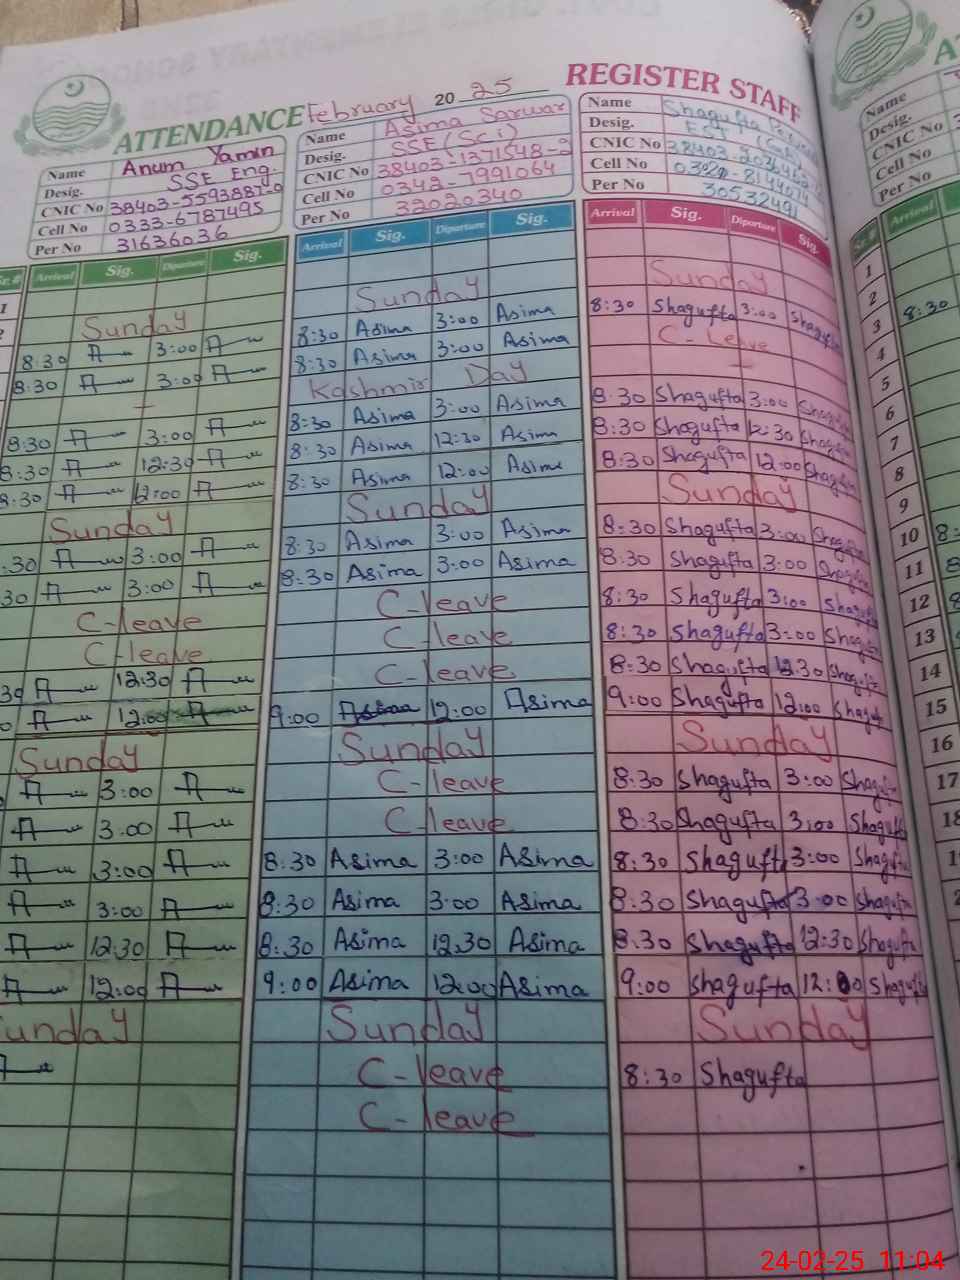 ATTENDANCE February 20 25 REGISTER STAFF
Name Anum Yamin
Desig. SSE Eng.
CNIC No 38403-5593887-0
Cell No 0333-6787495
Per No 31636036
Name Asima Sarwar
Desig. SSE (Sci)
CNIC No 38403-1371548-2
Cell No 0342-7991064
Per No 32020340
Name Shagufta
Desig. EST
CNIC No
Cell No
Per No 30532491
Arrival Sig. Diparture Sig. Arrival Sig. Diparture Sig. Arrival Sig. Diparture Sig.
Sunday Sunday Sunday
8:30 3:00 8:30 Asima 3:00 Asima 8:30 Shagufta 3:00 Shagufta
8:30 3:00 8:30 Asima 3:00 Asima C-Leave
Kashmir Day
8:30 3:00 8:30 Asima 3:00 Asima 8:30 Shagufta 3:00 Shagufta
8:30 12:30 8:30 Asima 12:30 Asima 8:30 Shagufta 12:30 Shagufta
8:30 12:00 8:30 Asima 12:00 Asima 8:30 Shagufta 12:00 Shagufta
Sunday Sunday Sunday
:30 3:00 8:30 Asima 3:00 Asima 8:30 Shagufta 3:00 Shagufta
30 3:00 8:30 Asima 3:00 Asima 8:30 Shagufta 3:00 Shagufta
C-leave C-leave 8:30 Shagufta 3:00 Shagufta
C-leave C-leave 8:30 Shagufta 3:00 Shagufta
30 12:30 C-leave 8:30 Shagufta 12:30 Shagufta
12:00 9:00 Asima 12:00 Asima 9:00 Shagufta 12:00 Shaguf
Sunday Sunday Sunday
3:00 C-leave 8:30 Shagufta 3:00 Shagufta
3:00 C-leave 8:30 Shagufta 3:00 Shagufta
3:00 8:30 Asima 3:00 Asima 8:30 Shagufta 3:00 Shagufta
3:00 8:30 Asima 3:00 Asima 8:30 Shagufta 3:00 Shagufta
12:30 8:30 Asima 12:30 Asima 8:30 Shagufta 12:30 Shagufta
12:00 9:00 Asima 12:00 Asima 9:00 Shagufta 12:00 Shagufta
Sunday Sunday Sunday
C-leave 8:30 Shagufta
C-leave
Name
Desig.
CNIC No
Cell No
Per No
Sr.# Arrival
1
2
3 8:30
4
5
6
7
8
9
10
11
12
13
14
15
16
17
18
24-02-25 11:04